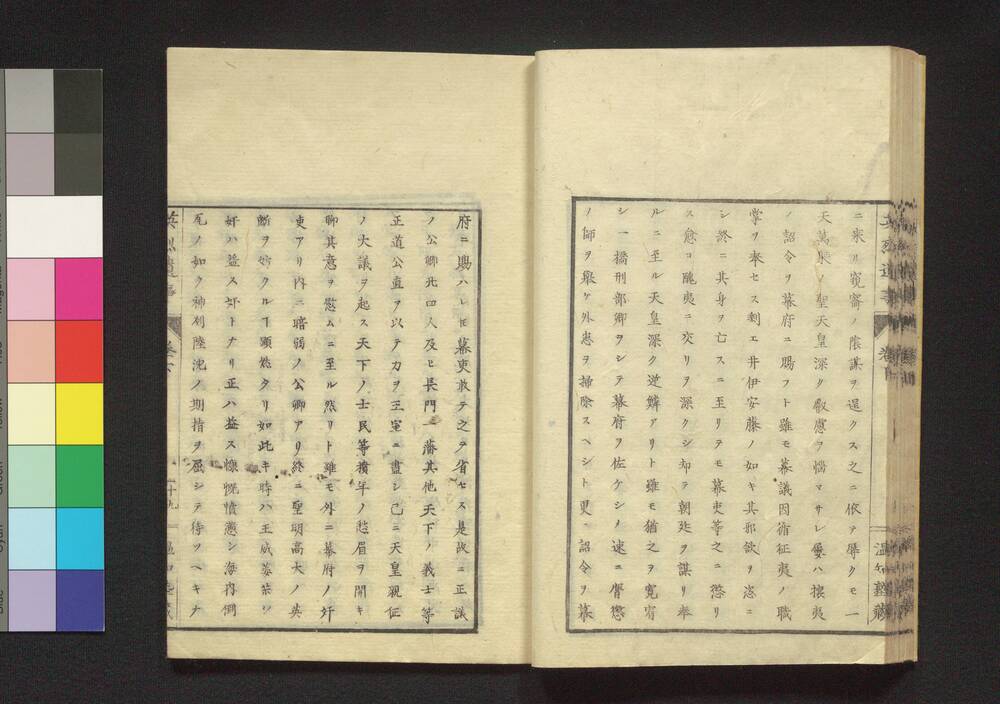 ニ來リ窺窬ノ陰謀ヲ逞クス之ニ依テ辱クモ一
天萬乗ノ聖天皇深ク叡慮ヲ惱マサレ屢ハ攘夷
ノ詔令ヲ幕府ニ賜フト雖モ幕議因術征夷ノ職
掌ヲ奉セス剰ヱ井伊安藤ノ如キ其邪欲ヲ恣ニ
シ終ニ其身ヲ亡スニ至リテモ幕吏等之ニ懲リ
ス愈コ醜夷ニ交リヲ深クシ却ヲ朝廷ヲ謀リ奉
ルニ至ル天皇深ク逆鱗アリト雖モ猶之ヲ寛宥
シ一橋刑部卿ヲシテ幕府ヲ佐ケシノ速ニ膺懲
ノ師ヲ擧ケ外患ヲ掃除スヘシト更ニ詔令ヲ幕
府ニ賜ハレ𪜈幕吏敢テ之ヲ省セス是故ニ正議
ノ公卿九四人及ヒ長門一藩其他天下ノ義士等
正道公直ヲ以テ力ヲ王室ニ盡シ已ニ天皇親征
ノ大議ヲ起ス天下ノ士民等積年ノ愁眉ヲ開キ
聊其意ヲ慰ムニ至ル然リト雖モ外ニ幕府ノ奸
吏アリ内ニ暗弱ノ公卿アリ終ニ聖明高大ノ英
斷ヲ妨クルヿ顯然タリ如此キ時ハ王威萎苶シ
奸ハ益ス奸トナリ正ハ益ス慷慨憤懣シ海内倒
瓦ノ如ク神州陸沈ノ期指ヲ屈シテ待ツヘキナ